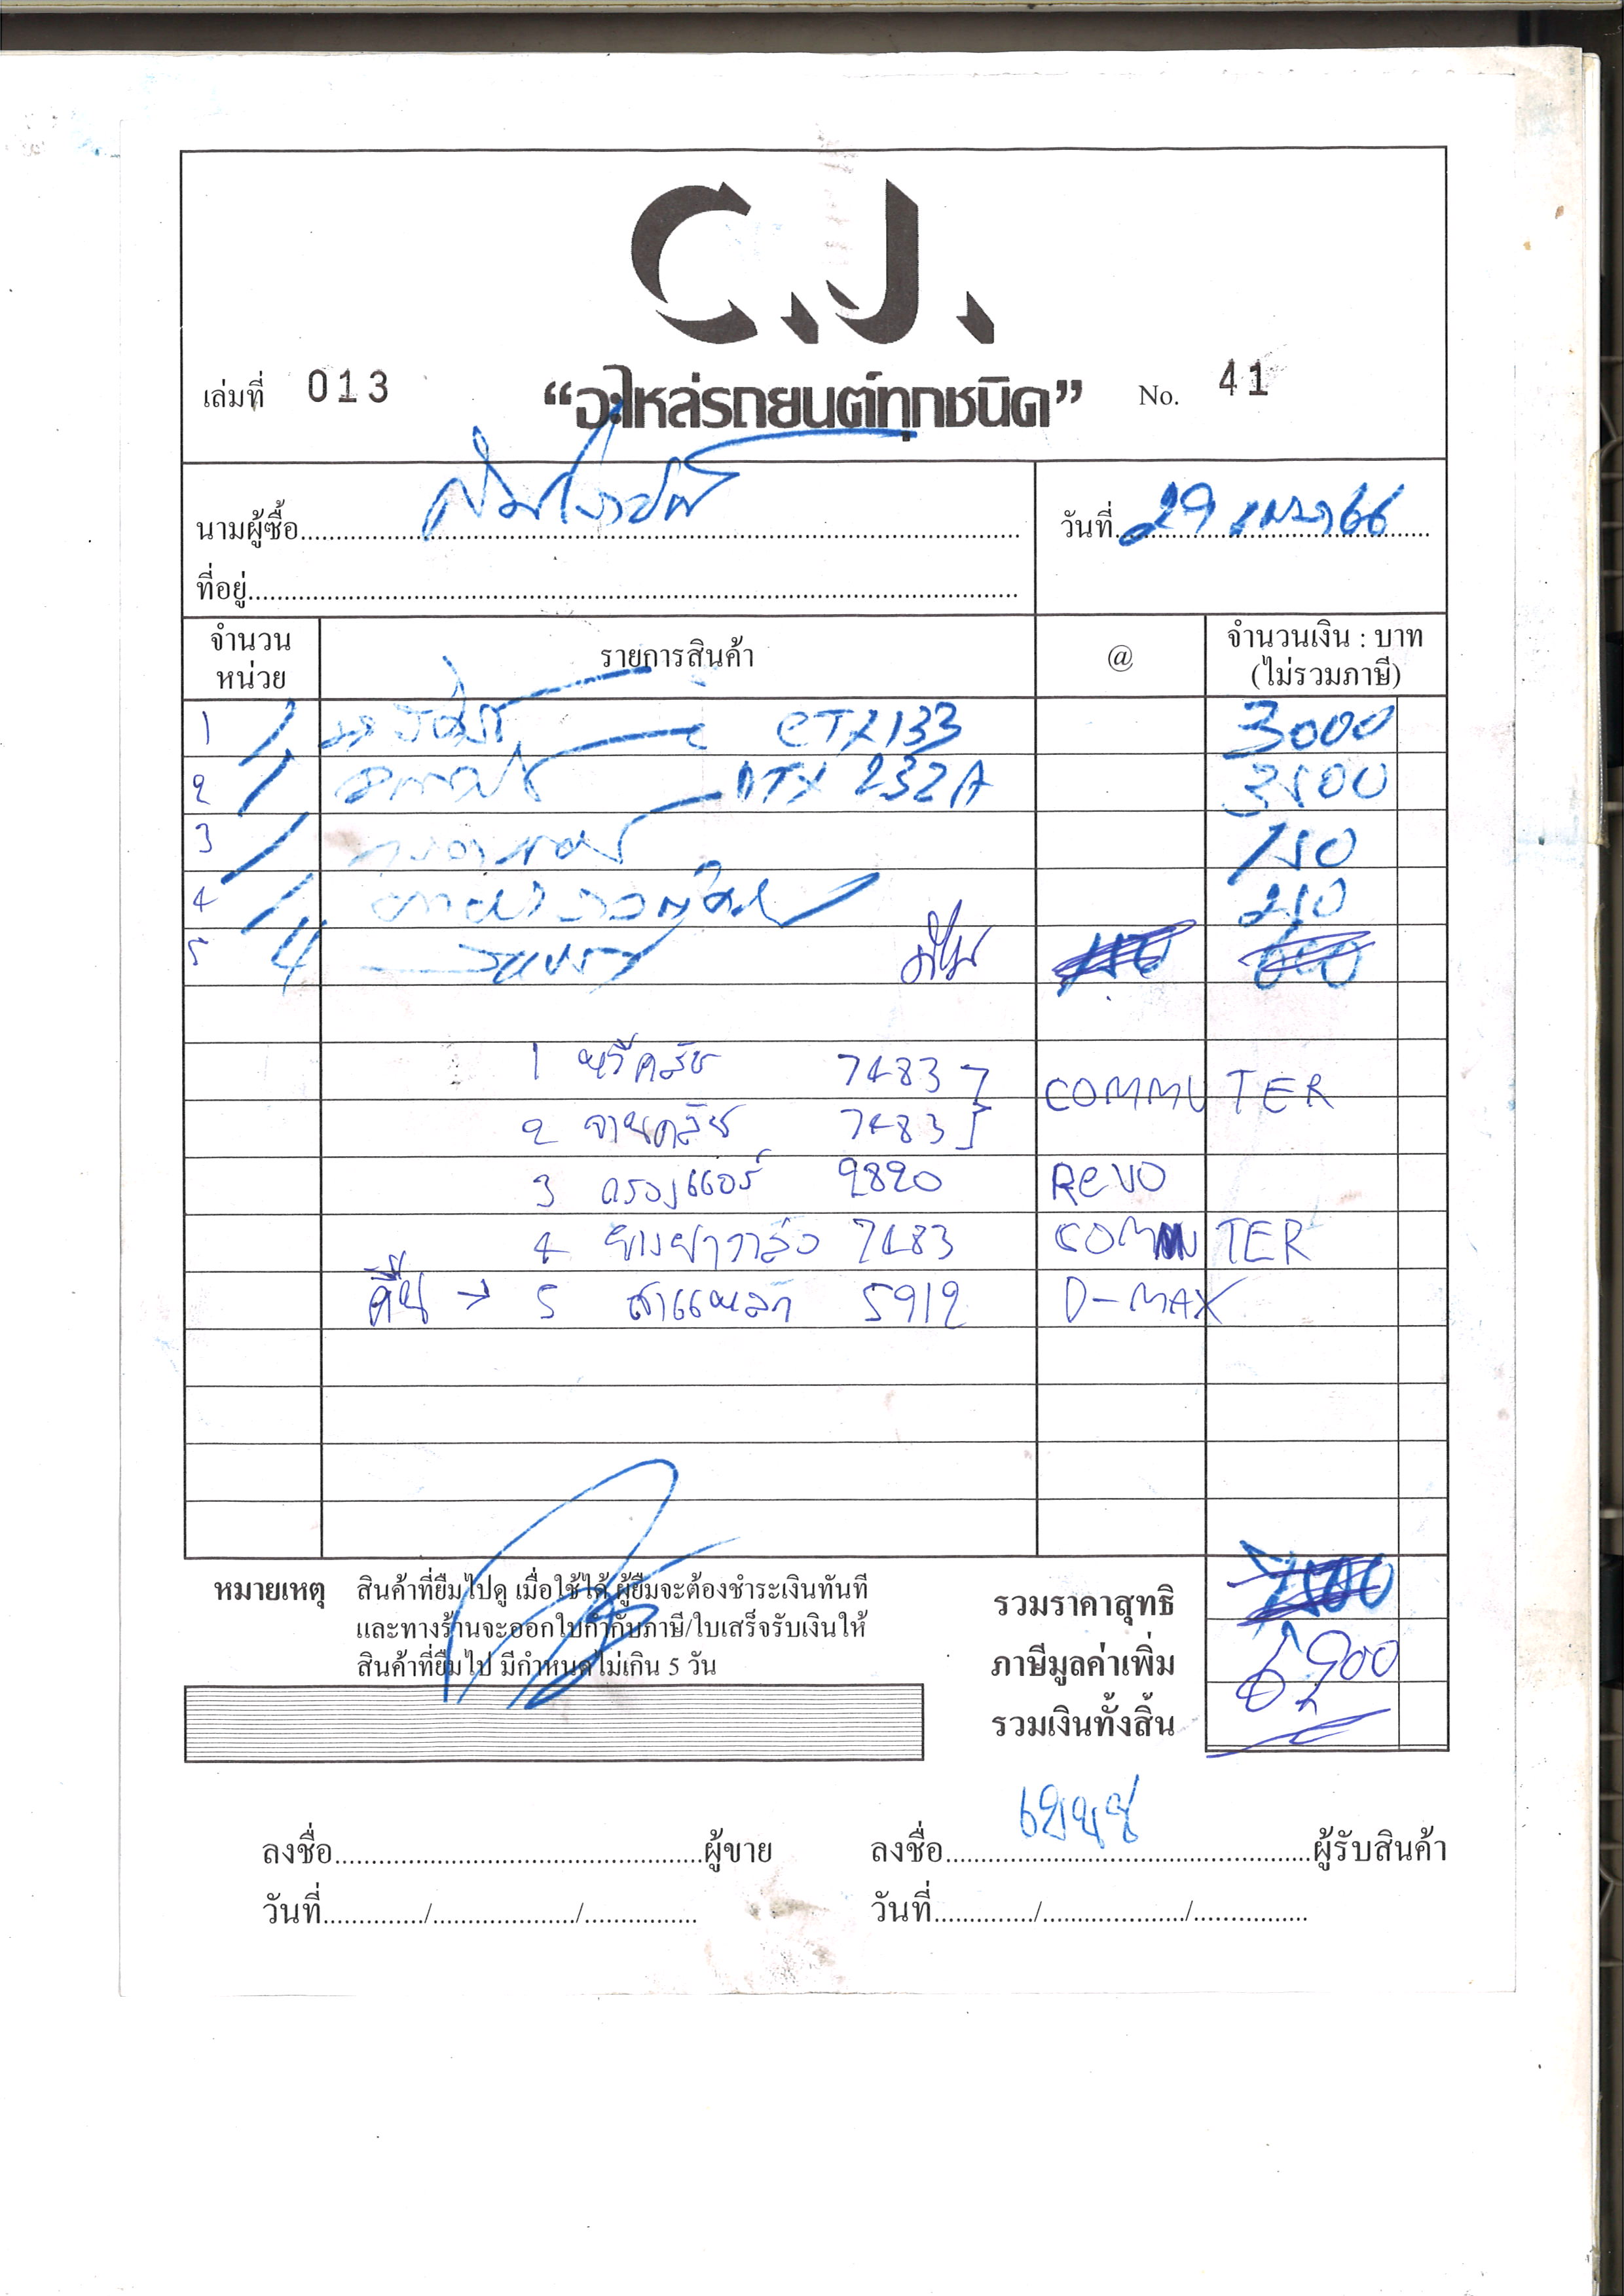 C.J.
เล่มที่ 013 “อะไหล่รถยนต์ทุกชนิด” No. 41
นามผู้ซื้อ
วันที่ 29 เมษา 66
ที่อยู่
จำนวน หน่วย รายการสินค้า @ จำนวนเงิน : บาท (ไม่รวมภาษี)
1 1 CTX133 3000
2 1 DTX 232A 3500
3 1 150
4 1 250
5 4 คืน 150 600
1 หวีคลัช 7483
COMMUTER
2 จานคลัช 7483
3 กรองแอร์ 9820 Revo
4 7483 COMMUTER
คืน → 5 สาแหลก 5912 D-MAX
หมายเหตุ สินค้าที่ยืมไปดู เมื่อใช้ได้ ผู้ยืมจะต้องชำระเงินทันที
และทางร้านจะออกใบกำกับภาษี/ใบเสร็จรับเงินให้
สินค้าที่ยืมไป มีกำหนดไม่เกิน 5 วัน
รวมราคาสุทธิ 7500
ภาษีมูลค่าเพิ่ม 6,900
รวมเงินทั้งสิ้น
ลงชื่อ ผู้ขาย ลงชื่อ ผู้รับสินค้า
วันที่ / / วันที่ / /